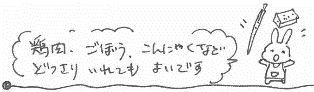 鶏肉、ごぼう、こんにゃくなど
どっさり いれても よいです